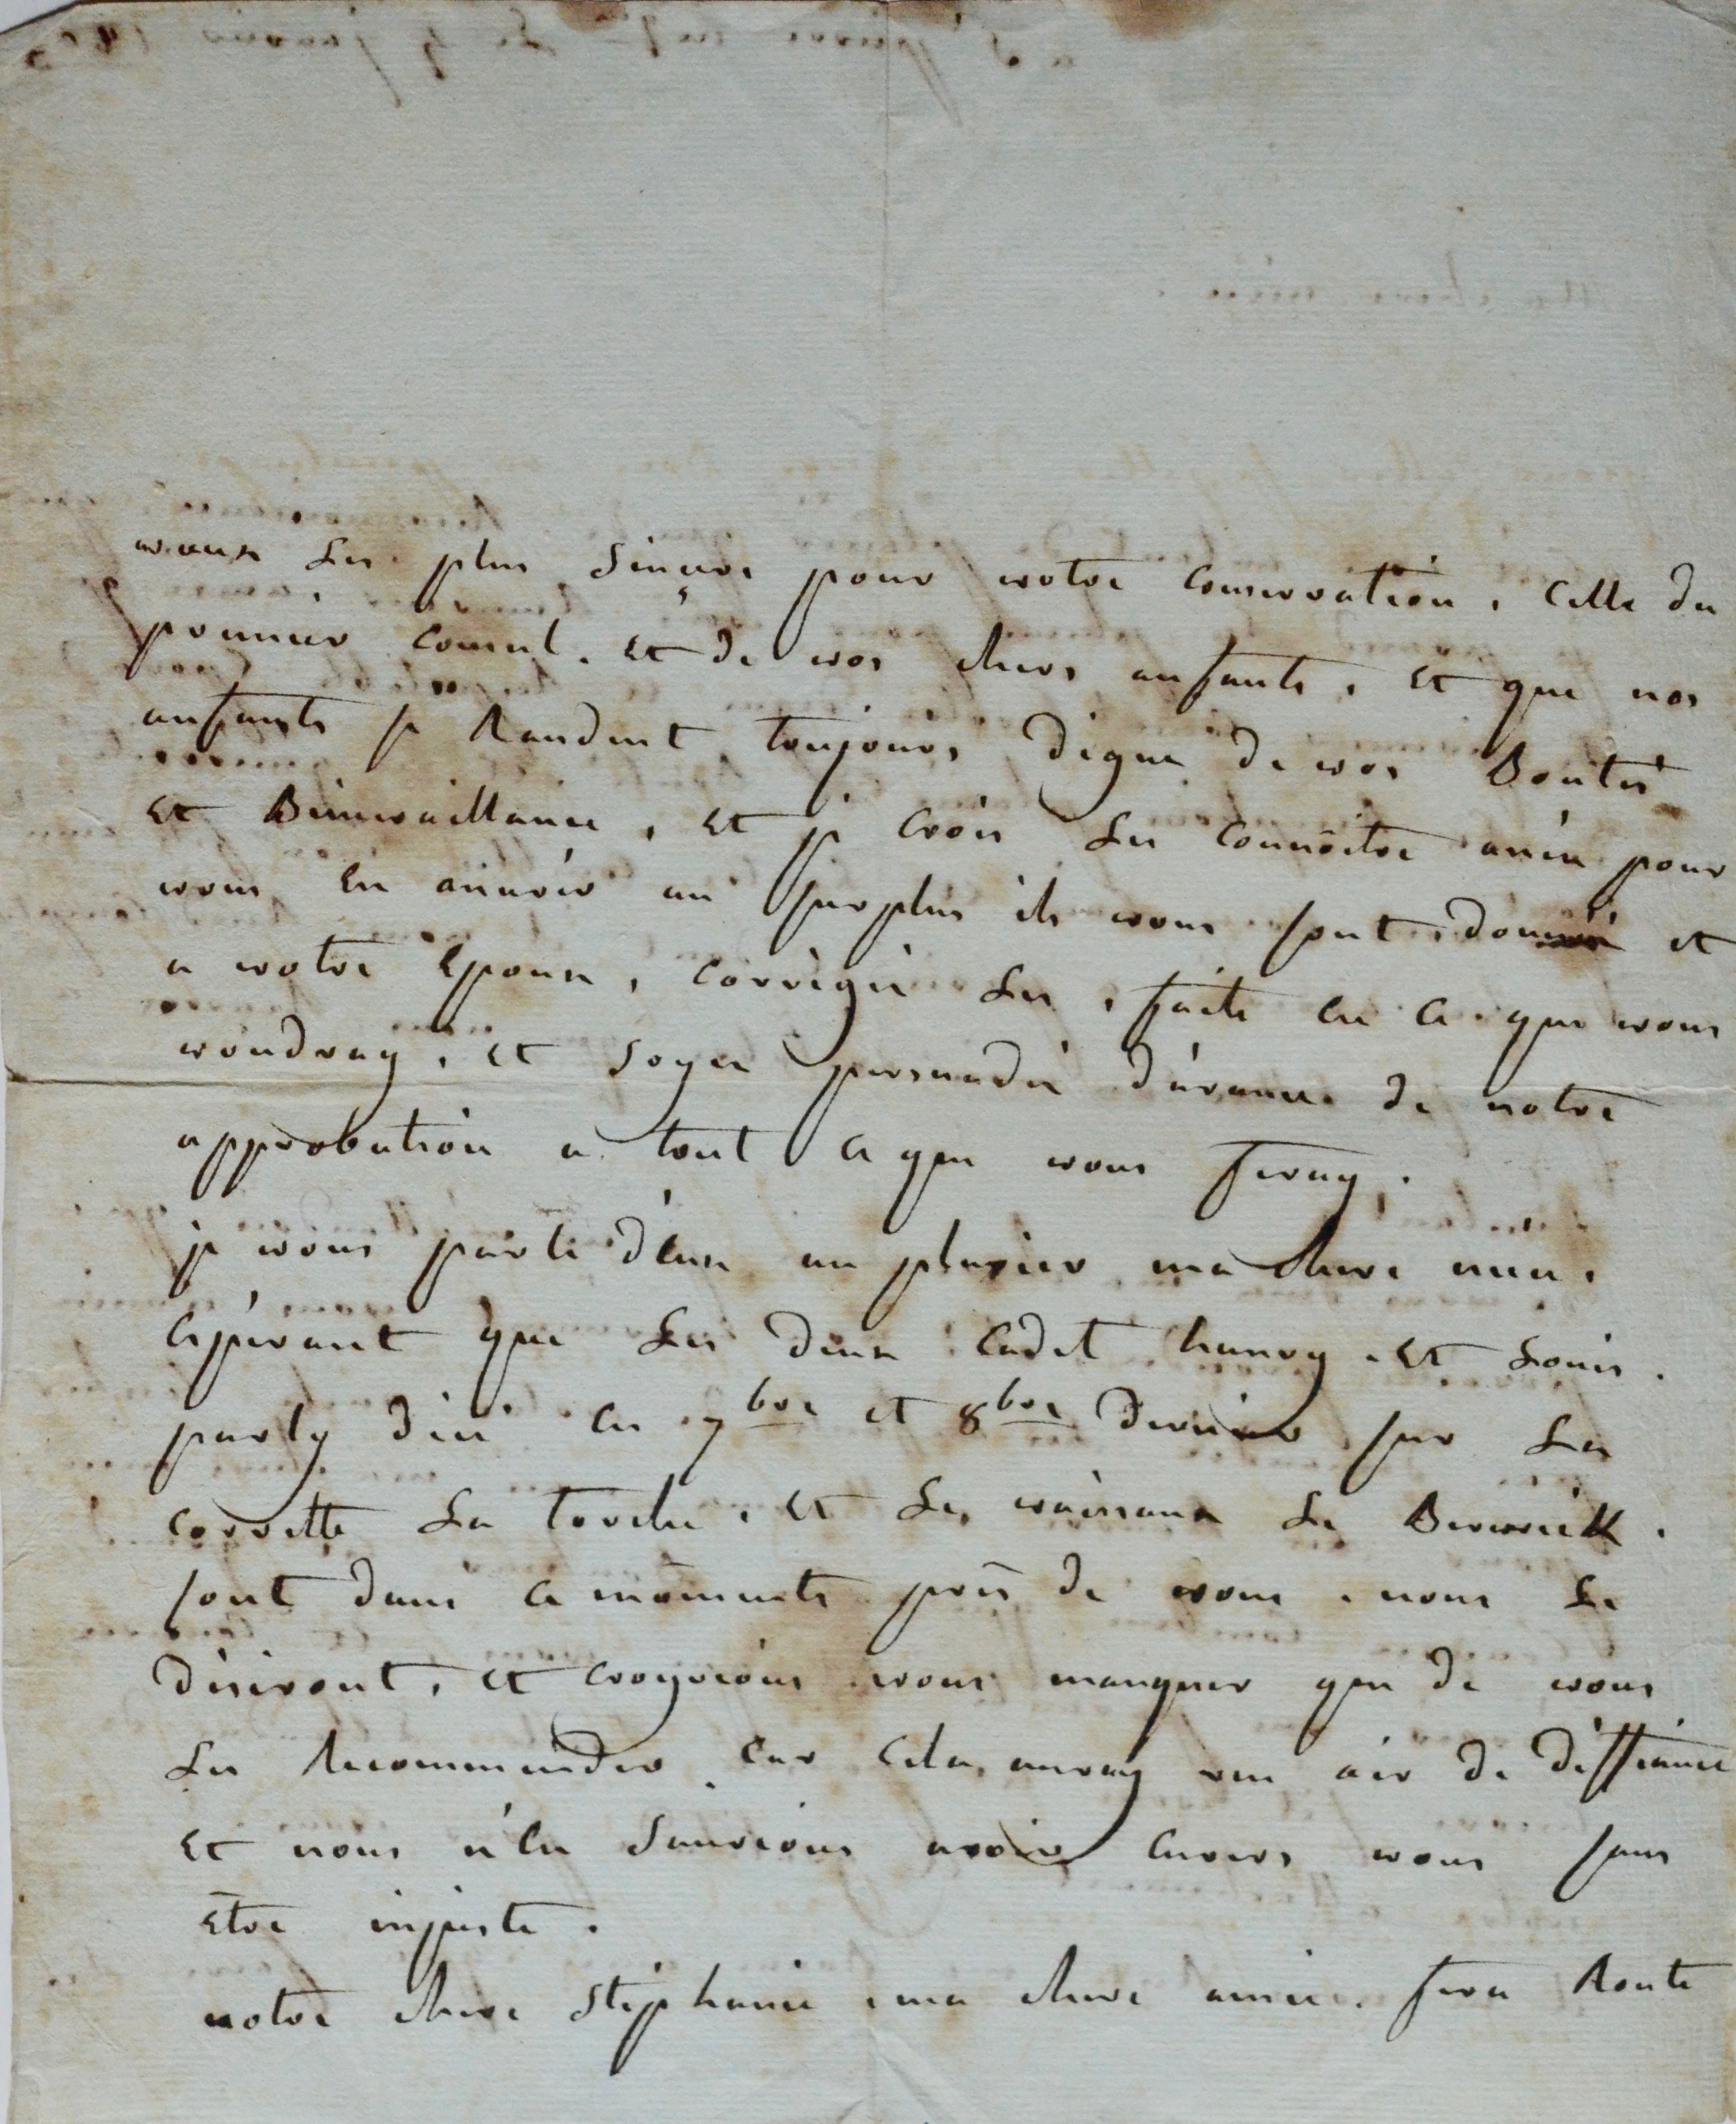 wœux Les plus Sinçere pour wotre conservation, celle du
premiér consul. et de wos chers anfants, et que nos
anfants se Randent toujours digne de wos Bontés
et Bienwaillance, et je crois Les connoître assés pour
wous en assurér au surplus ils wous sont donné et
a wotre Epoux, corrigés Les, faite en ce que wous
woudray, et soyez persuadés d'avance de notre
approbation a tout ce que wous feray.
je wous parle d'eux au plurier ma chere niéce.
Espérant que Les deux cadet hanry et Louis.
party d'ici en 7bre et 8bre dernier sur La
corvette La torche, et Le waissaux Le Berwick.
sont dans ce moments près de wous. nous Le
désiront, et croyrions wous manquer que de wous
Les Recommender. car cela auray un air de deffiance
et nous n'en Saurions avoir envers wous sans
Etre injuste.
notre chere Stéphanie, ma chere amie. fera Route